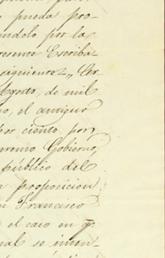 pueda pro-
ndolo por la
Escriba
siguiente: „
Agosto, de mil
o, el antiguo
por ciento, por
premo Gobierno,
público del
a proposicion
n Francisco
el caso en q.
nal se